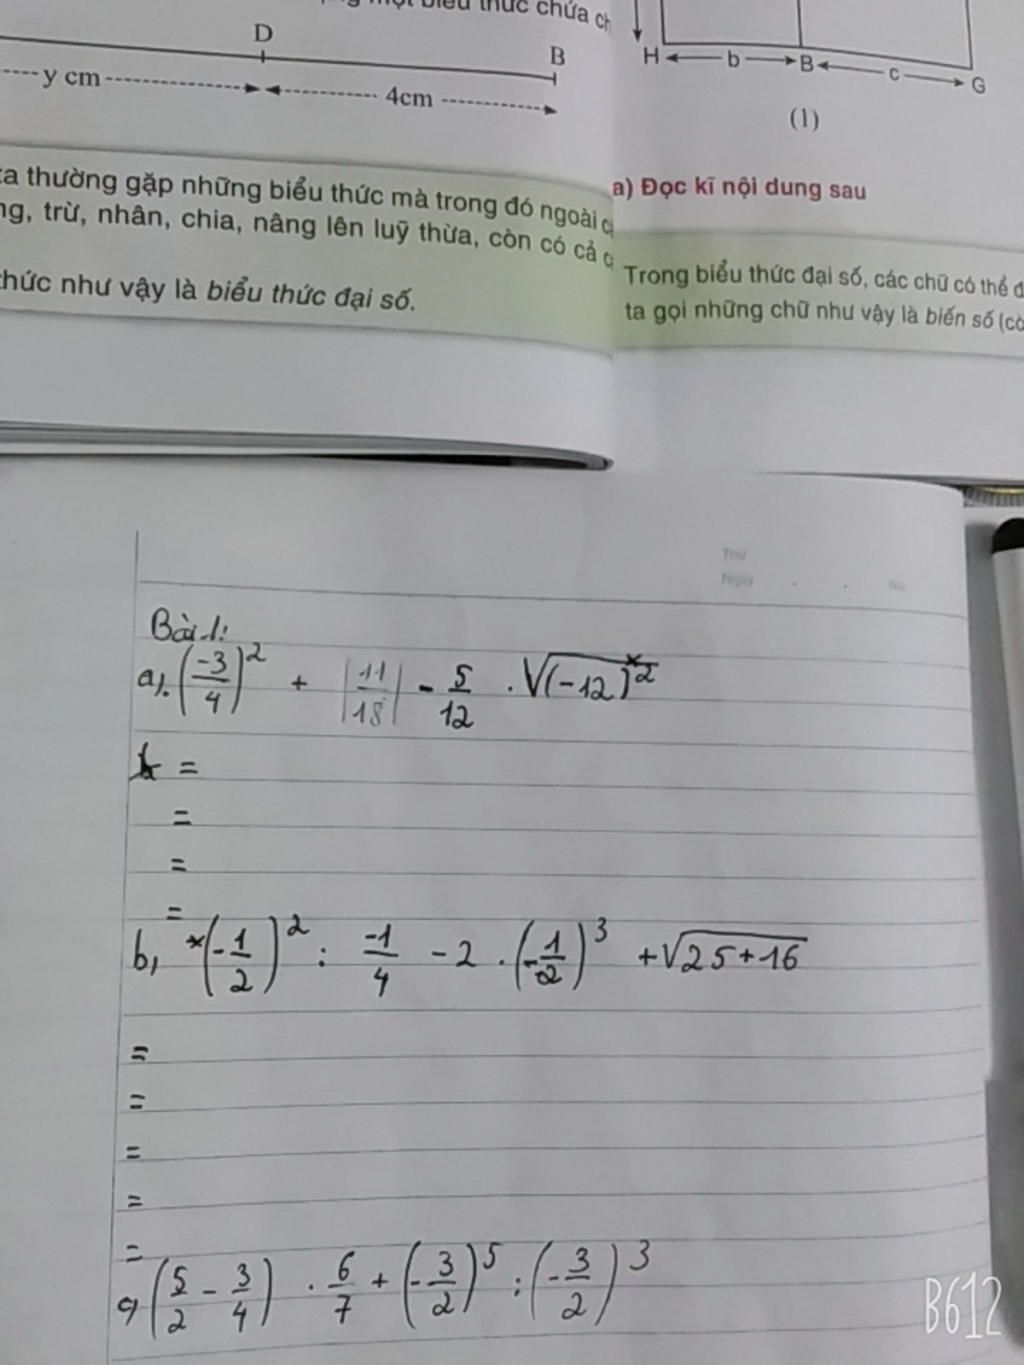 biểu thức chứa
D
B
y cm
4cm
ta thường gặp những biểu thức mà trong đó ngoài
ng, trừ, nhân, chia, nâng lên luỹ thừa, còn có cả
thức như vậy là biểu thức đại số.
H b B c G
(1)
a) Đọc kĩ nội dung sau
Trong biểu thức đại số, các chữ có thể đ
ta gọi những chữ như vậy là biến số (cò
Thứ
Ngày . . No
Bài 1:
a). (-3/4)^2 + |11/18| - 5/12 . √(-12)^2
=
=
=
=
b, *(-1/2)^2 : -1/4 - 2 . (-1/2)^3 + √25+16
=
=
=
=
=
c, (5/2 - 3/4) . 6/7 + (-3/2)^5 : (-3/2)^3
B612